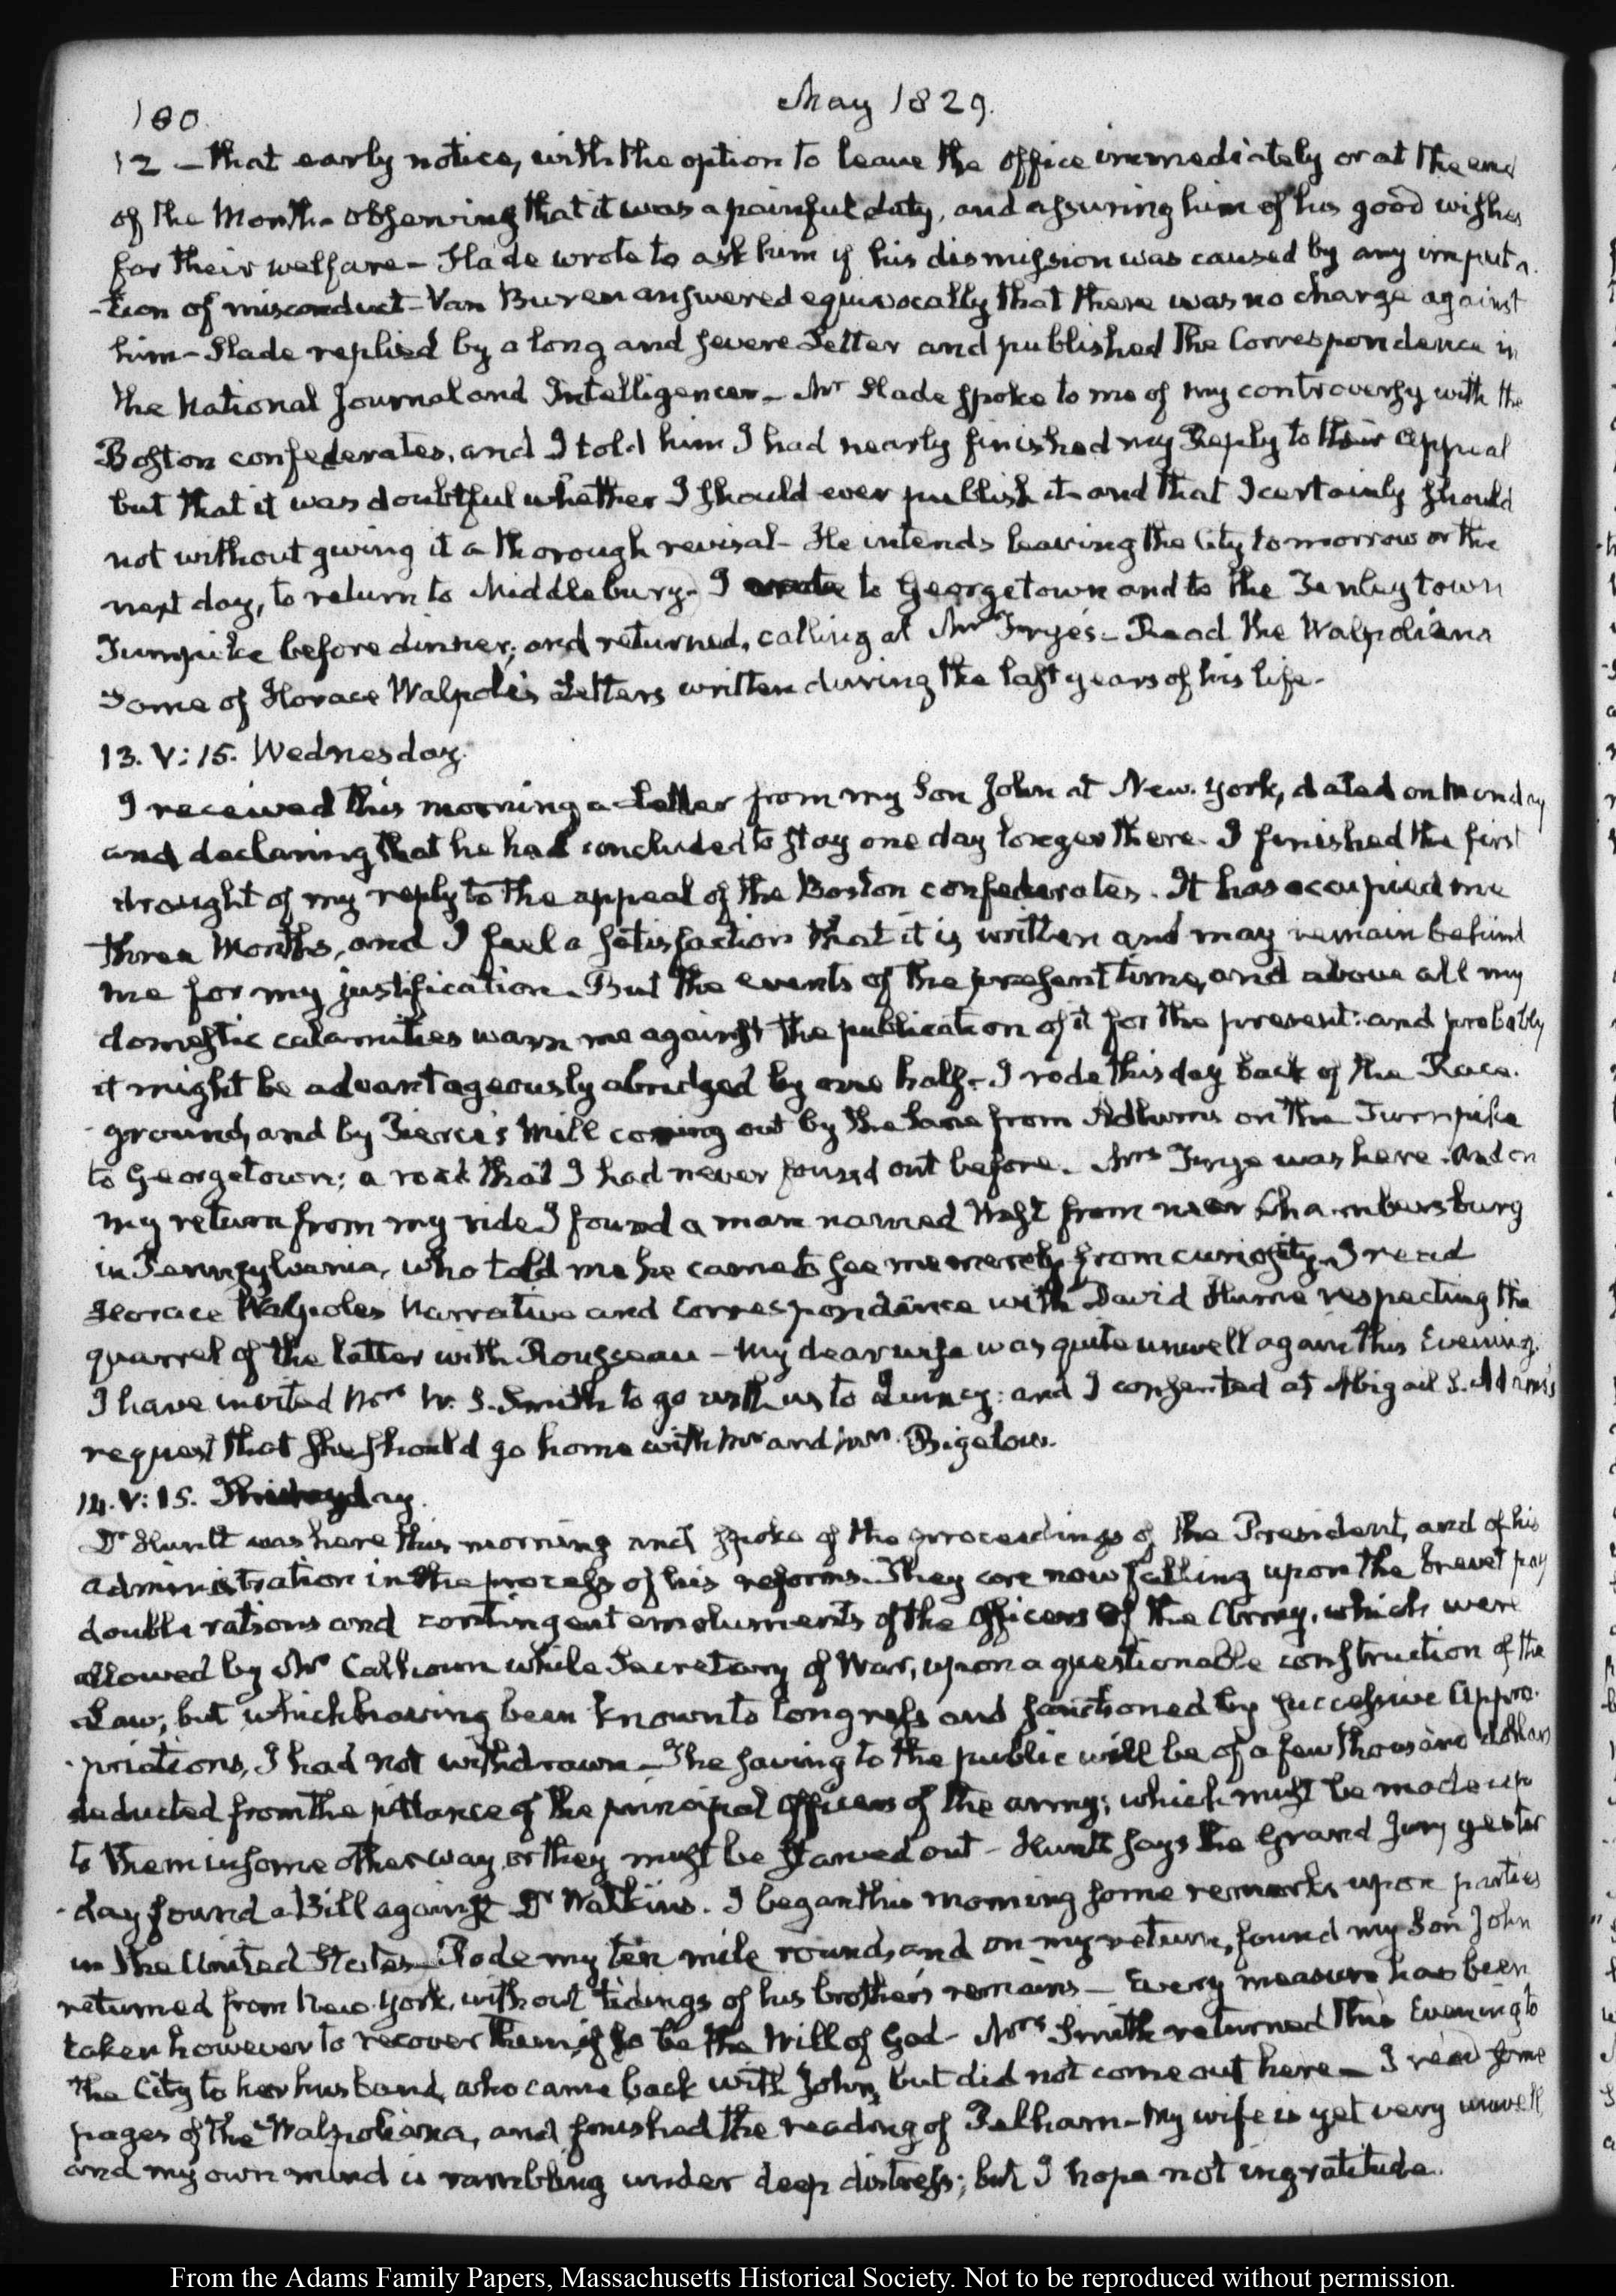 180
May 1829.
12 – that early notice, with the option to leave the office immediately or at the end
of the Month – observing that it was a painful duty, and assuring him of his good wishes
for their welfare – Slade wrote to ask him if his dismission was caused by any imputa-
-tion of misconduct – Van Buren answered equivocally that there was no charge against
him – Slade replied by a long and severe Letter and published the Correspondence in
the National Journal and Intelligencer – Mr Slade spoke to me of my controversy with the
Boston confederates, and I told him I had nearly finished my Reply to their Appeal
but that it was doubtful whether I should ever publish it and that I certainly should
not without giving it a thorough revisal – He intends leaving the City to morrow or the
next day, to return to Middlebury – I to Georgetown and to the Tenleytown
Turnpike before dinner; and returned, calling at Mr Frye's – Read the Walpoliana
Some of Horace Walpole's Letters written during the last years of his life –
13. V: 15. Wednesday.
I received this morning a Letter from my Son John at New-York, dated on Monday
and declaring that he had concluded to stay one day longer there. I finished the first
draught of my reply to the appeal of the Boston confederates. It has occupied me
three Months, and I feel a satisfaction that it is written and may remain behind
me for my justification. But the events of the present time, and above all my
domestic calamities warn me against the publication of it for the present: and probably
it might be advantageously abridged by one half. I rode this day back of the Race
ground, and by Pierce's Mill coming out by the Lane from on the Turnpike
to Georgetown; a road that I had never found out before. Mrs Frye was here. And on
my return from my ride I found a man named West from near Chambersburg
in Pennsylvania, who told me he came to see me merely from curiosity. I read
Horace Walpoles Narrative and Correspondence with David Hume respecting the
quarrel of the latter with Rousseau – My dear wife was quite unwell again this Evening.
I have invited Mrs W. S. Smith to go with us to Quincy: and I consented at Abigail S. Adams's
request that she should go home with Mr and Mrs. Bigelow.
14. V: 15. Thursday.
Dr Huntt was here this morning and spoke of the proceedings of the President, and of his
administration in the process of his reforms. They are now falling upon the brevet pay
double rations and contingent emoluments of the Officers of the Army, which were
allowed by Mr Calhoun while Secretary of War, upon a questionable construction of the
Law; but which having been known to Congress and sanctioned by successive Appro-
-priations, I had not withdrawn – The saving to the public will be of a few thousand dollars
deducted from the pittance of the principal Officers of the army; which must be made up
to them in some other way or they must be starved out – Huntt says the Grand Jury yester
-day found a Bill against Dr Watkins. I began this morning some remarks upon parties
in the United States – Rode my ten mile round, and on my return, found my Son John
returned from New-York, without tidings of his brother's remains – Every measure has been
taken however to recover them, if so be the Will of God – Mrs Smith returned this Evening to
the City to her husband, who came back with John, but did not come out here – I read some
pages of the Walpoliana, and finished the reading of Pelham – My wife is yet very unwell
and my own mind is rambling under deep distress; but I hope not ingratitude.
From the Adams Family Papers, Massachusetts Historical Society. Not to be reproduced without permission.